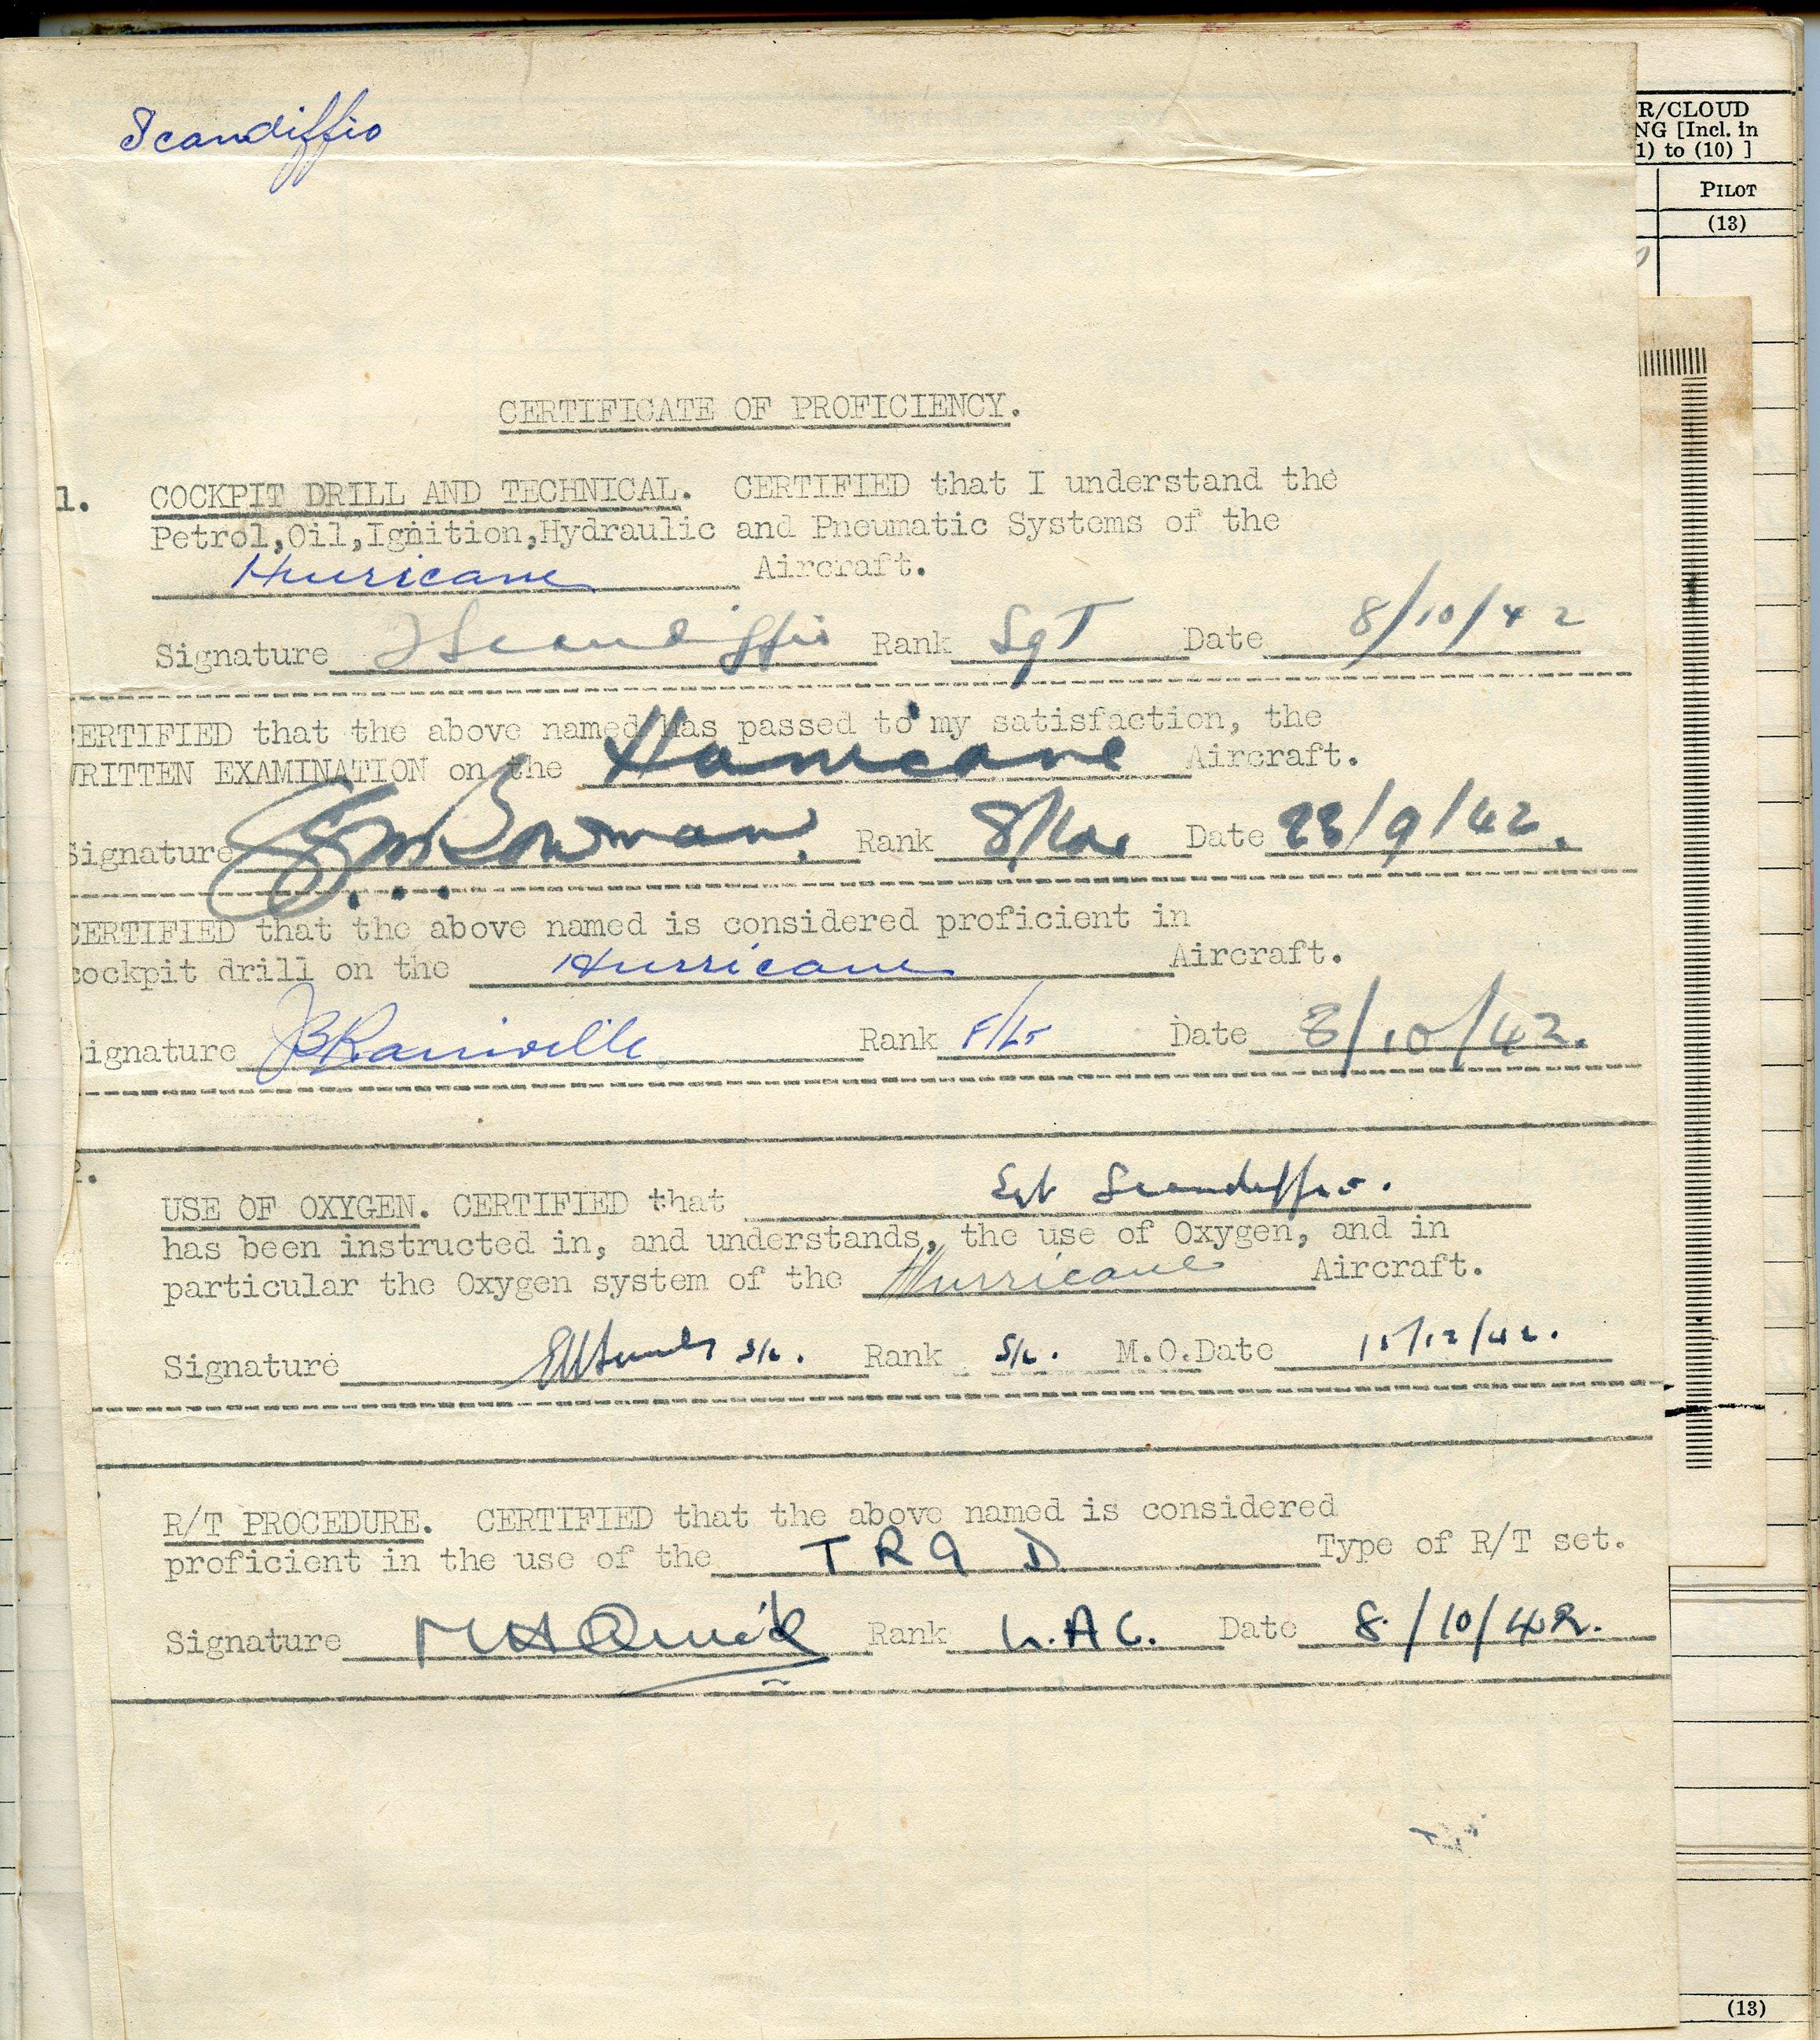 Scandiffio
R/CLOUD
NG [Incl. in
1) to (10) ]
PILOT
(13)
CERTIFICATE OF PROFICIENCY.
1. COCKPIT DRILL AND TECHNICAL. CERTIFIED that I understand the
Petrol,Oil,Ignition,Hydraulic and Pneumatic Systems of the
Hurricane Aircraft.
Signature Scandiffio Rank Sgt Date 8/10/42
ERTIFIED that the above named has passed to my satisfaction, the
WRITTEN EXAMINATION on the Hurricane Aircraft.
Signature Bowman. Rank Date 23/9/42.
CERTIFIED that the above named is considered proficient in
cockpit drill on the Hurricane Aircraft.
ignature JBRainville Rank F/Lt Date 8/10/42.
2.
USE OF OXYGEN. CERTIFIED that Sgt Scandiffio.
has been instructed in, and understands, the use of Oxygen, and in
particular the Oxygen system of the Hurricane Aircraft.
Signature S/L. Rank S/L. M.O.Date /12/42.
R/T PROCEDURE. CERTIFIED that the above named is considered
proficient in the use of the TR9 D Type of R/T set.
Signature Rank L.A.C. Date 8/10/42.
(13)